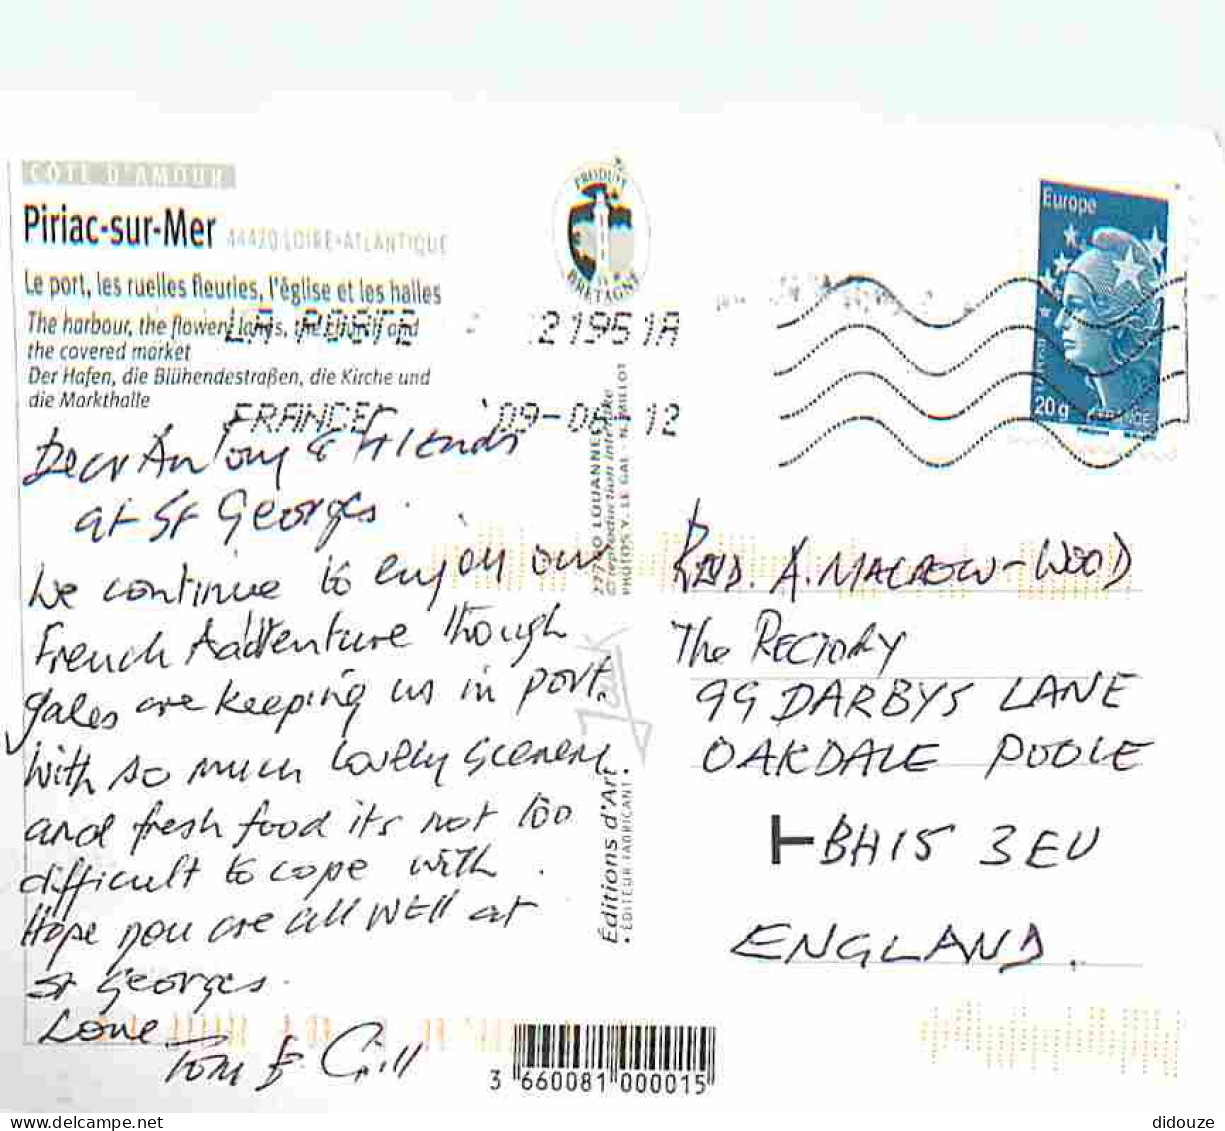 CÔTE D'AMOUR
Piriac-sur-Mer 44420 LOIRE-ATLANTIQUE
Le port, les ruelles fleuries, l'église et les halles
The harbour, the flowery lanes, the church and
the covered market
Der Hafen, die Blühendestraßen, die Kirche und
die Markthalle
PRODUIT
BRETAGNE
LA POSTE 21961A
FRANCE 09-06 12
Europe
20g
FRANCE
Dear Antony & Friends
at St Georges.
We continue to enjoy our
French Aadventure though
gales are keeping us in port.
With so much lovely scenery
and fresh food its not too
difficult to cope with.
Hope you are all well at
St Georges.
Love
Tom & Gill
22770 LOUANNEC
© reproduction interdite
PHOTOS Y. LE GAL - N.
Jack
Éditions d'Art
• ÉDITEUR FABRICANT •
Revd. A. MACROW-WOOD
The RECTORY
99 DARBYS LANE
OAKDALE POOLE
BH15 3EU
ENGLAND.
3 660081 000015
didouze